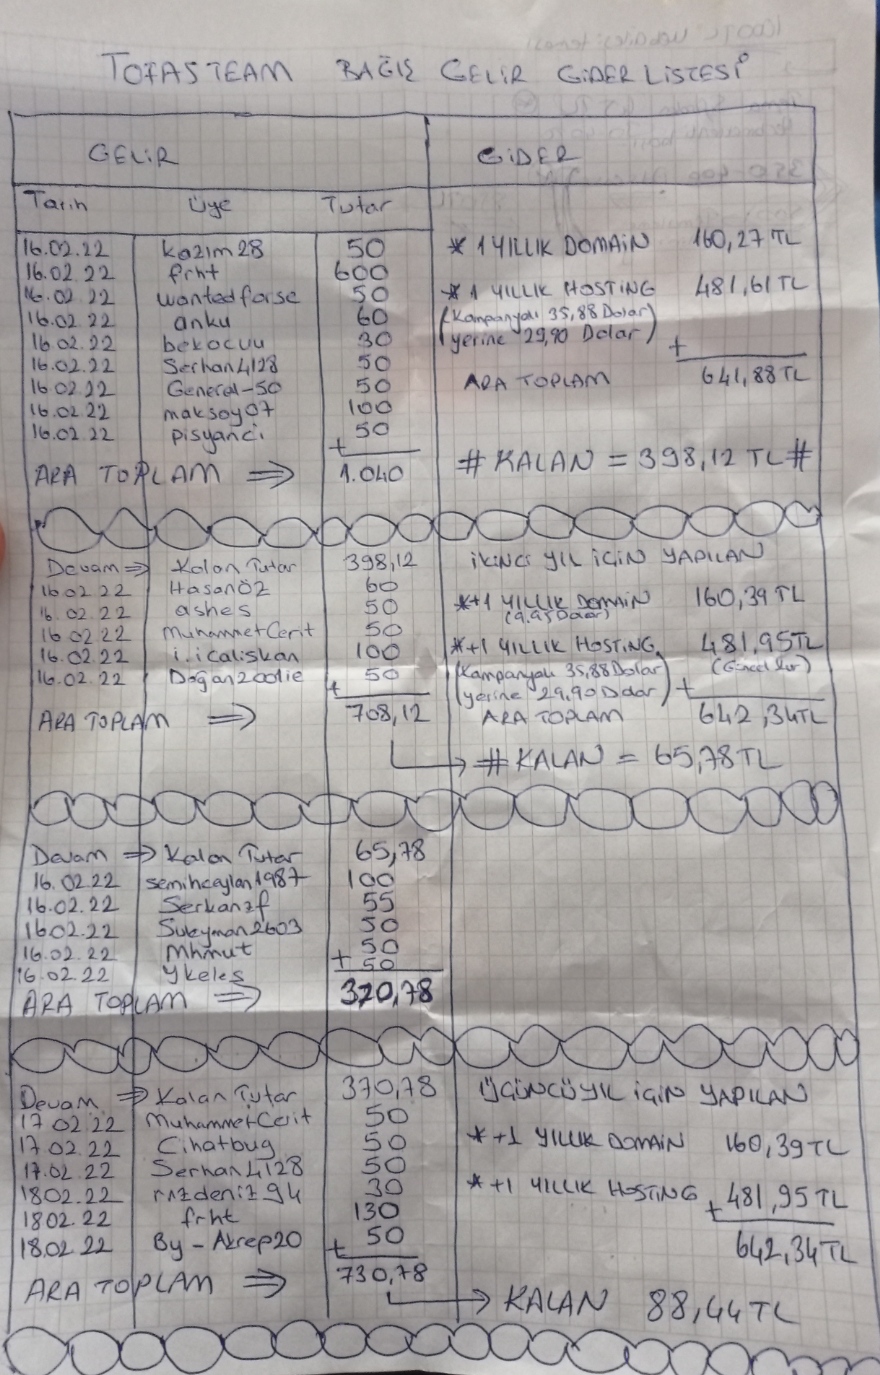 TOFASTEAM BAĞIŞ GELİR GİDER LİSTESİ
GELİR GİDER
Tarih Üye Tutar
16.02.22 kazım28 50 * 1 YILLIK DOMAİN 160,27 TL
16.02.22 frht 600
16.02.22 wantedforse 50 * 1 YILLIK HOSTİNG 481,61 TL
16.02.22 anku 60 (Kampanyalı 35,88 Dolar)
16.02.22 bekocuu 30 yerine 29,90 Dolar) +
16.02.22 Serhan4128 50
16.02.22 General-50 50 ARA TOPLAM 641,88 TL
16.02.22 maksoy07 100
16.02.22 pisyanci 50 +
ARA TOPLAM ⇒ 1.040 # KALAN = 398,12 TL #
Devam ⇒ Kalan Tutar 398,12 İKİNCİ YIL İÇİN YAPILAN
16.02.22 HasanÖZ 60
16.02.22 ashes 50 *+1 YILLIK DOMAİN 160,39 TL
(9.95 Dolar)
16.02.22 MuhammetCerit 50
16.02.22 i.icaliskan 100 *+1 YILLIK HOSTİNG 481,95TL
16.02.22 Dogan200die 50 + (Kampanyalı 35,88 Dolar (Güncel kur)
yerine 29,90 Dolar) +
ARA TOPLAM ⇒ 708,12 ARA TOPLAM 642,34TL
→ # KALAN = 65,78 TL
Devam ⇒ Kalan Tutar 65,78
16.02.22 semihceylan1987 100
16.02.22 Serkanzf 55
16.02.22 Suleyman2603 50
16.02.22 Mhmut 50
16.02.22 Ykeles + 50
ARA TOPLAM ⇒ 370,78
Devam ⇒ Kalan Tutar 370,78 ÜÇÜNCÜ YIL İÇİN YAPILAN
17.02.22 MuhammetCerit 50
17.02.22 Cihatbug 50 *+1 YILLIK DOMAİN 160,39 TL
17.02.22 Serhan4128 50
18.02.22 rnzdeniz94 30 *+1 YILLIK HOSTİNG + 481,95 TL
18.02.22 frht 130
18.02.22 By-Akrep20 + 50 642,34 TL
ARA TOPLAM ⇒ 730,78
→ KALAN 88,44 TL